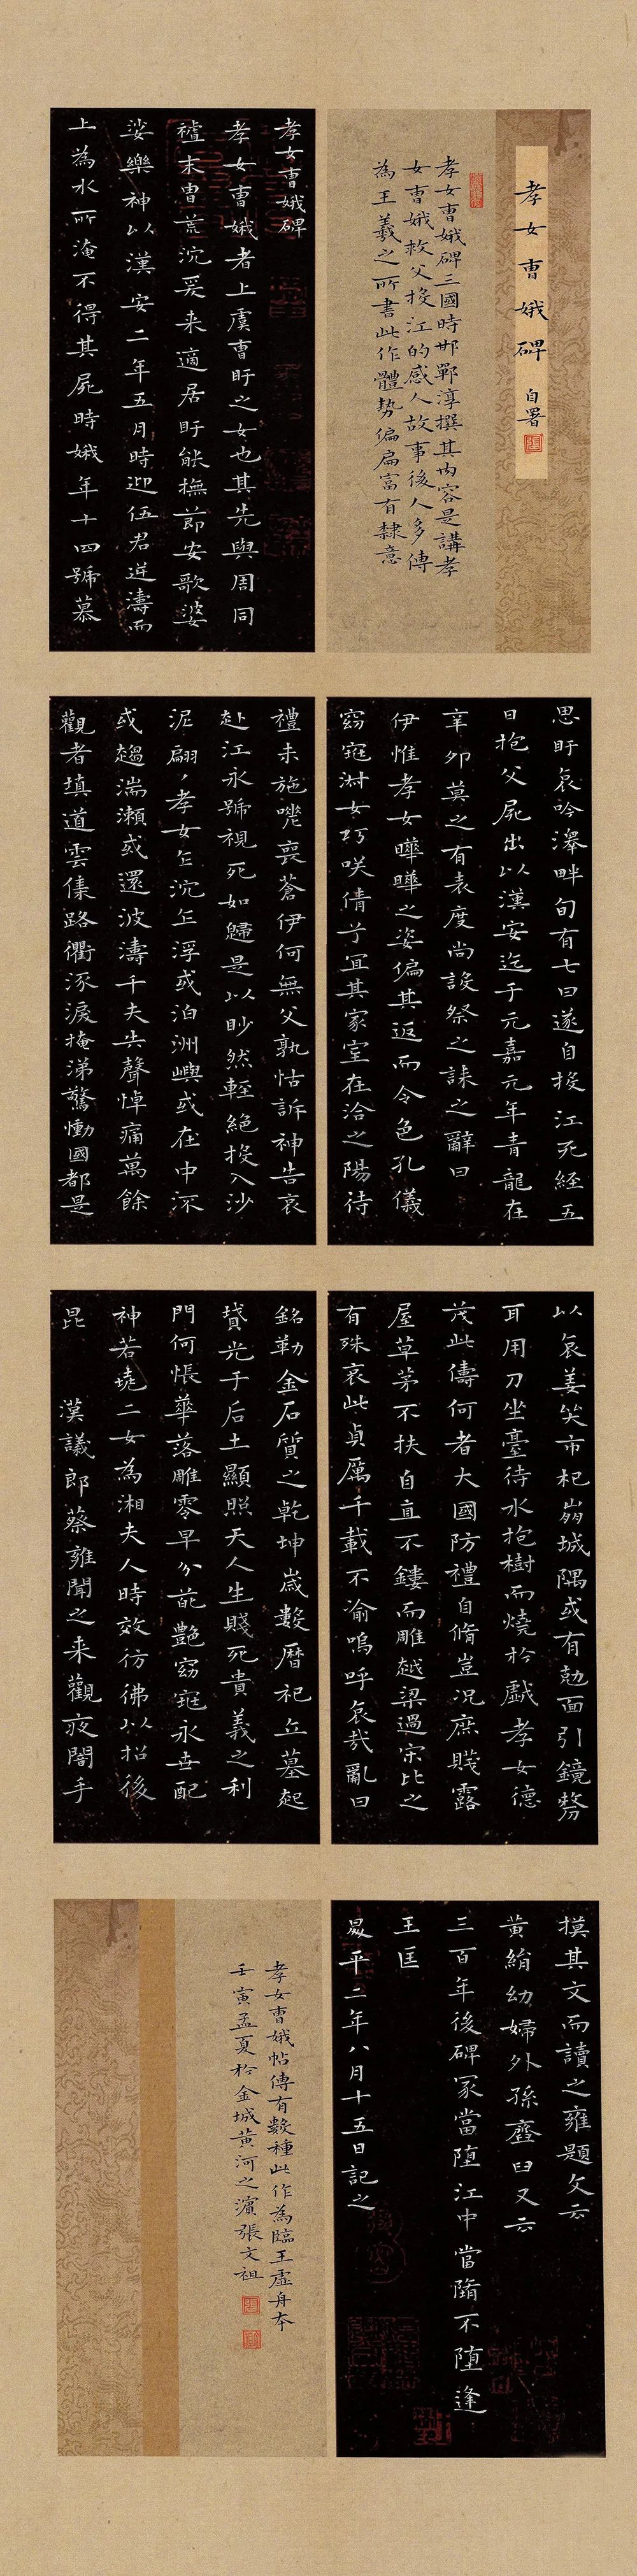 孝女曹娥碑 自署
孝女曹娥碑三國時邯鄲淳撰其內容是講孝
女曹娥救父投江的感人故事後人多傳
為王羲之所書此作體勢偏扁富有隸意
孝女曹娥碑
孝女曹娥者上虞曹盱之女也其先與周同
祖末胄荒沈爰来適居盱能撫節安歌婆
娑樂神以漢安二年五月時迎伍君逆濤而
上為水所淹不得其屍時娥年十四號慕
思盱哀吟澤畔旬有七日遂自投江死經五
日抱父屍出以漢安迄于元嘉元年青龍在
辛卯莫之有表度尚設祭之誄之辭曰
伊惟孝女曄曄之姿偏其返而令色孔儀
窈窕淑女巧咲倩兮宜其家室在洽之陽待
禮未施嗟喪蒼伊何無父孰怙訴神告哀
赴江永號視死如歸是以眇然輕絕投入沙
泥翩〻孝女乍沉乍浮或泊洲嶼或在中流
或趨湍瀨或還波濤千夫失聲悼痛萬餘
觀者填道雲集路衢泳淚掩涕驚慟國都是
以哀姜哭市杞崩城隅或有尅面引鏡剺
耳用刀坐臺待水抱樹而燒於戲孝女德
茂此儔何者大國防禮自脩豈況庶賤露
屋草茅不扶自直不鏤而雕越梁過宋比之
有殊哀此貞厲千載不渝嗚呼哀哉亂曰
銘勒金石質之乾坤歲數曆祀丘墓起
墳光于后土顯照天人生賤死貴義之利
門何悵華落雕零早分葩艷窈窕永世配
神若堯二女為湘夫人時效彷彿以招後
昆 漢議郎蔡雍聞之来觀夜闇手
摸其文而讀之雍題文云
黃絹幼婦外孫齏臼又云
三百年後碑冢當墮江中當隳不墮逢
王匡
昇平二年八月十五日記之
孝女曹娥帖傳有數種此作為臨王虛舟本
壬寅孟夏於金城黃河之濱張文祖